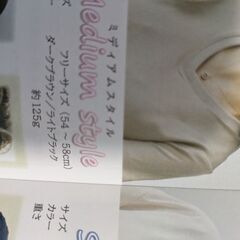 Medium style
ミディアムスタイル
フリーサイズ(54~58cm)
ダークブラウン/ライトブラック
約125g
サイズ
カラー
重さ